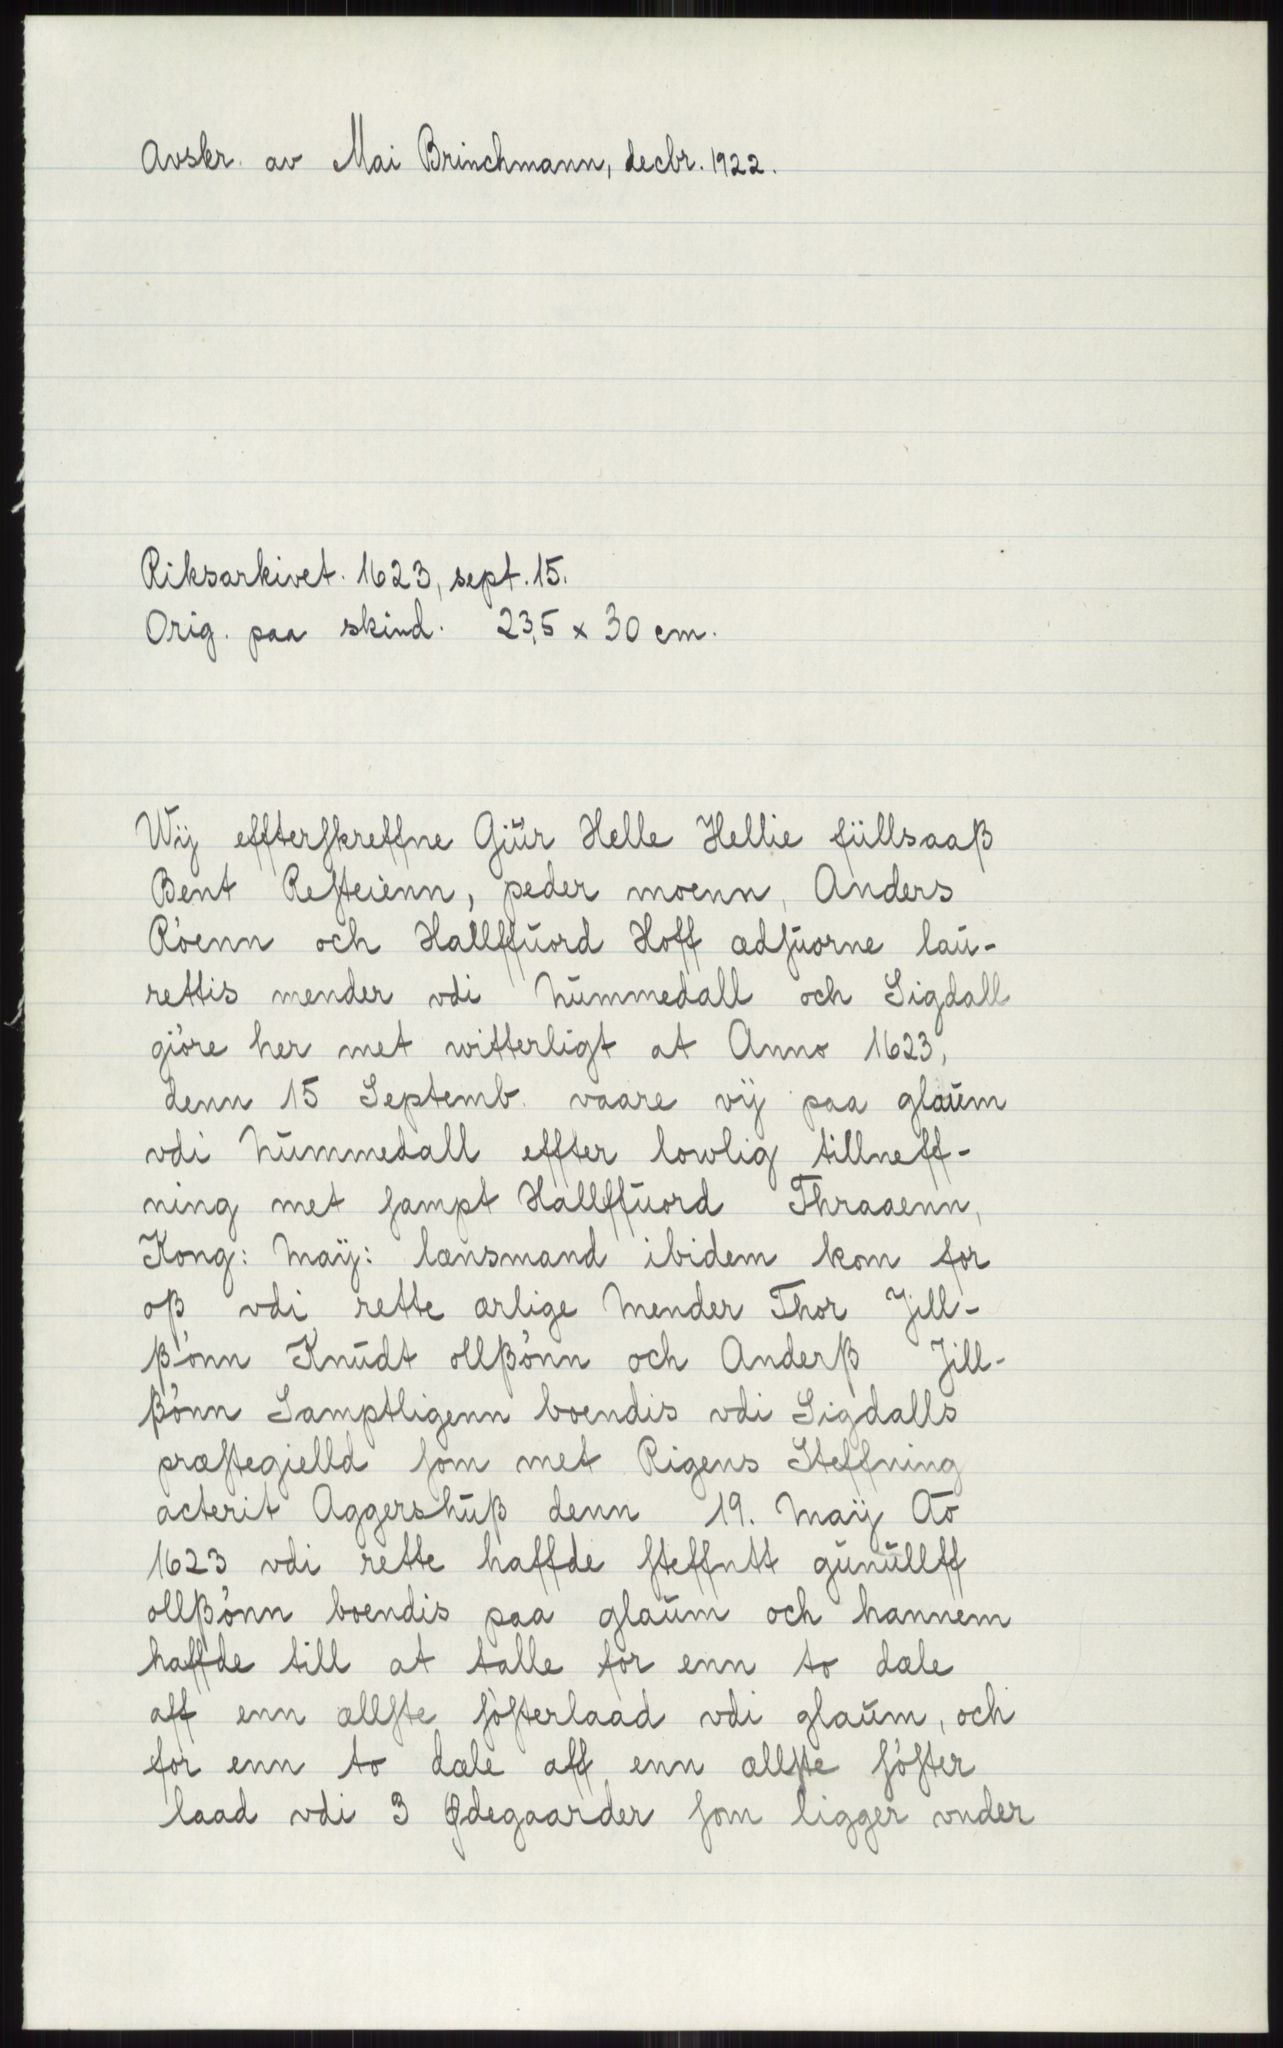 Avskr. av Mai Brinchmann, decbr. 1922.
Riksarkivet. 1623, sept. 15.
Orig. paa skind. 23,5 x 30 cm.
Wÿ effterſkreffne Giŭr Helle Hellie fŭllsaaß
Bent Reſteienn, peder moenn, Anders
Róenn och Hallffŭord Hoff ædſŭorne laŭ-
rettis mender vdi Nŭmmedall och Sigdall
gióre her met witterligt at Anno 1623,
denn 15 Septemb. vaare vÿ paa glaŭm
vdi Nŭmmedall effter lowlig tillneff-
ning met ſampt Hallffŭord Thraaenn,
Kong: Maÿ: lænsmand ibidem kom for
oß vdi rette ærlige Mender Thor Jill-
ßónn Knŭdt ollßónn och Anderß Jill-
ßónn Samptligenn boendis vdi Sigdalls
præſtegielld ſom met Rigens Steffning
acterit Aggershŭß denn 19. Maÿ Ao
1623 vdi rette haffde ſteffntt gŭnŭllff
ollßónn boendis paa glaŭm och hannem
haffde till at talle for enn to dæle
aff enn ællſte ſóſterlaad vdi glaŭm, och
for enn to dæle aff enn ællſte ſóſter
laad vdi 3 Ødegaarder ſom ligger vnder